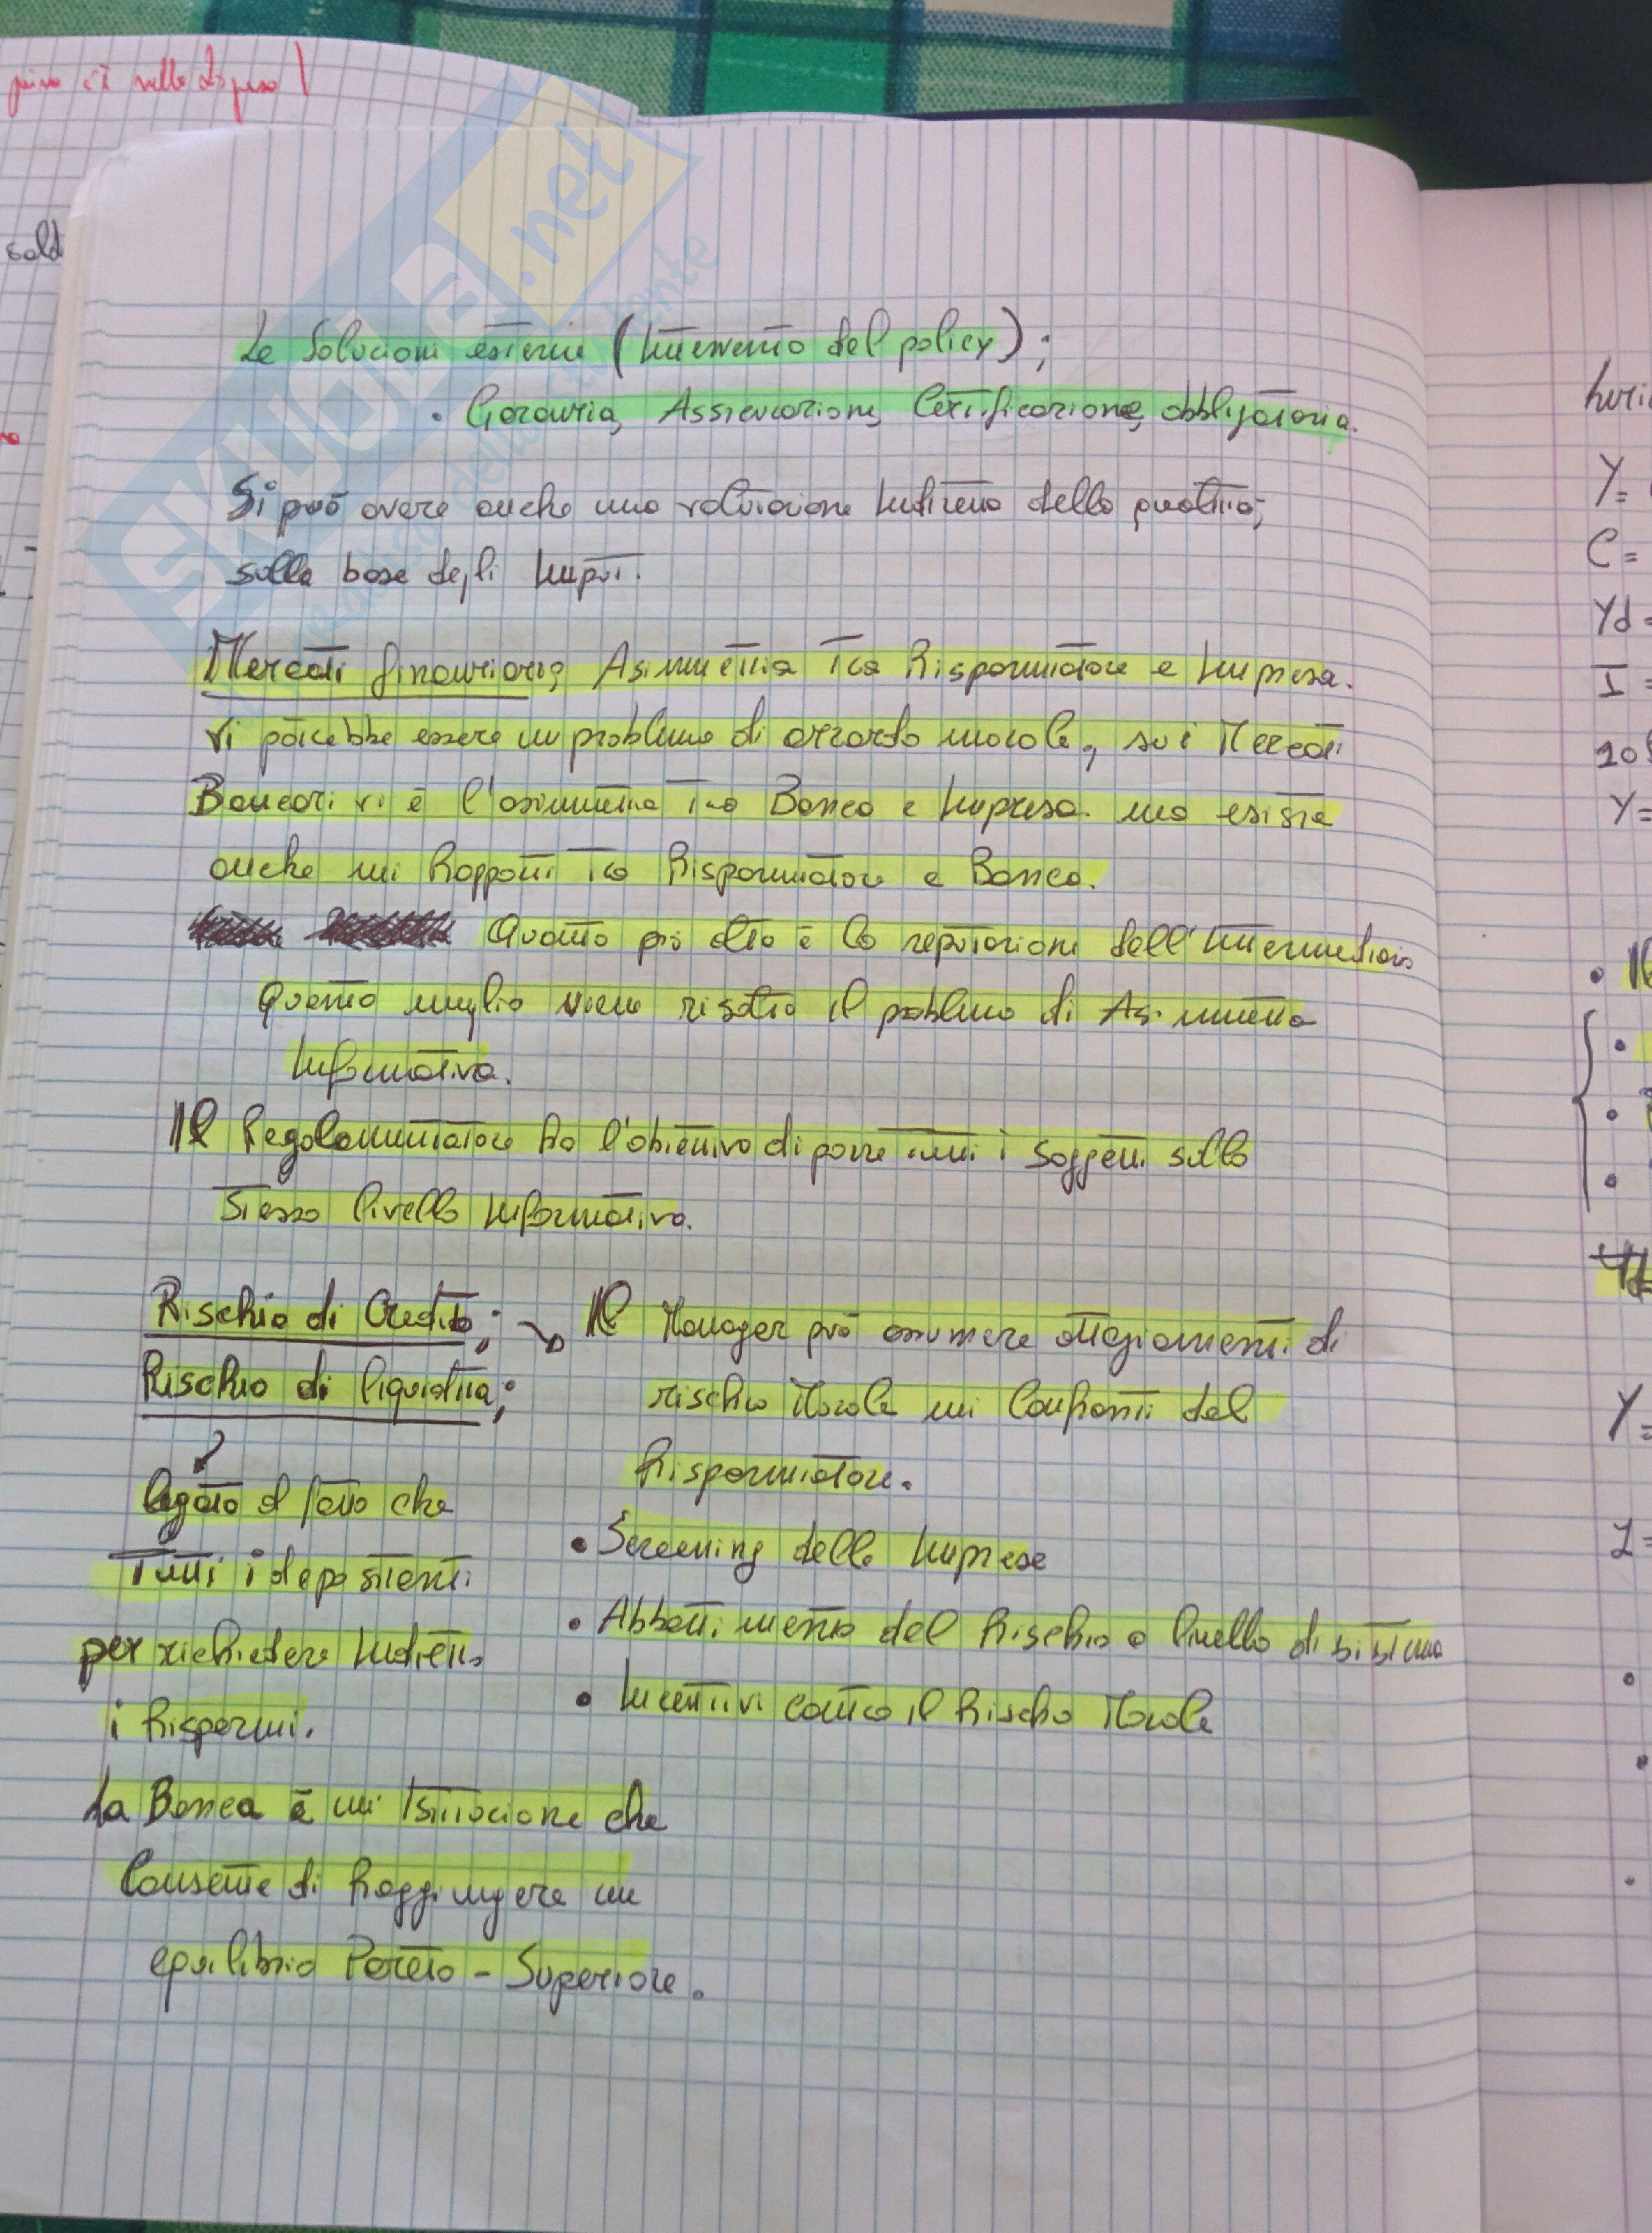 Le Soluzioni esterne (Intervento del policy);
• Garanzia, Assicurazione, Certificazione, obbligatoria.
Si può avere anche una valutazione indiretta della qualità;
sulla base degli input.
Mercati finanziario, Asimmetria tra Risparmiatore e Impresa.
Vi potrebbe essere un problema di azzardo morale, sui Mercati
Bancari vi è l'asimmetria tra Banca e Impresa. ma esiste
anche nei Rapporti tra Risparmiatore e Banca.
Quanto più alta è la reputazione dell'Intermediario
Quanto meglio viene risolto il problema di Asimmetria
Informativa.
Il Regolamentatore ha l'obiettivo di porre tutti i soggetti sullo
stesso livello informativo.
Rischio di Credito; → Il Manager può assumere atteggiamenti di
rischio Morale nei Confronti del
Risparmiatore.
• Screening delle Imprese
• Abbattimento del Rischio a livello di sistema
• Incentivi contro il Rischio Morale
Rischio di liquidità;
legato al fatto che
Tutti i depositanti
per richiedere indietro
i Risparmi.
La Banca è un'Istituzione che
Consente di Raggiungere un
equilibrio Pareto - Superiore.
sold
Y=
C=
Yd=
I=
Y=
Y=
SKUOLA.net